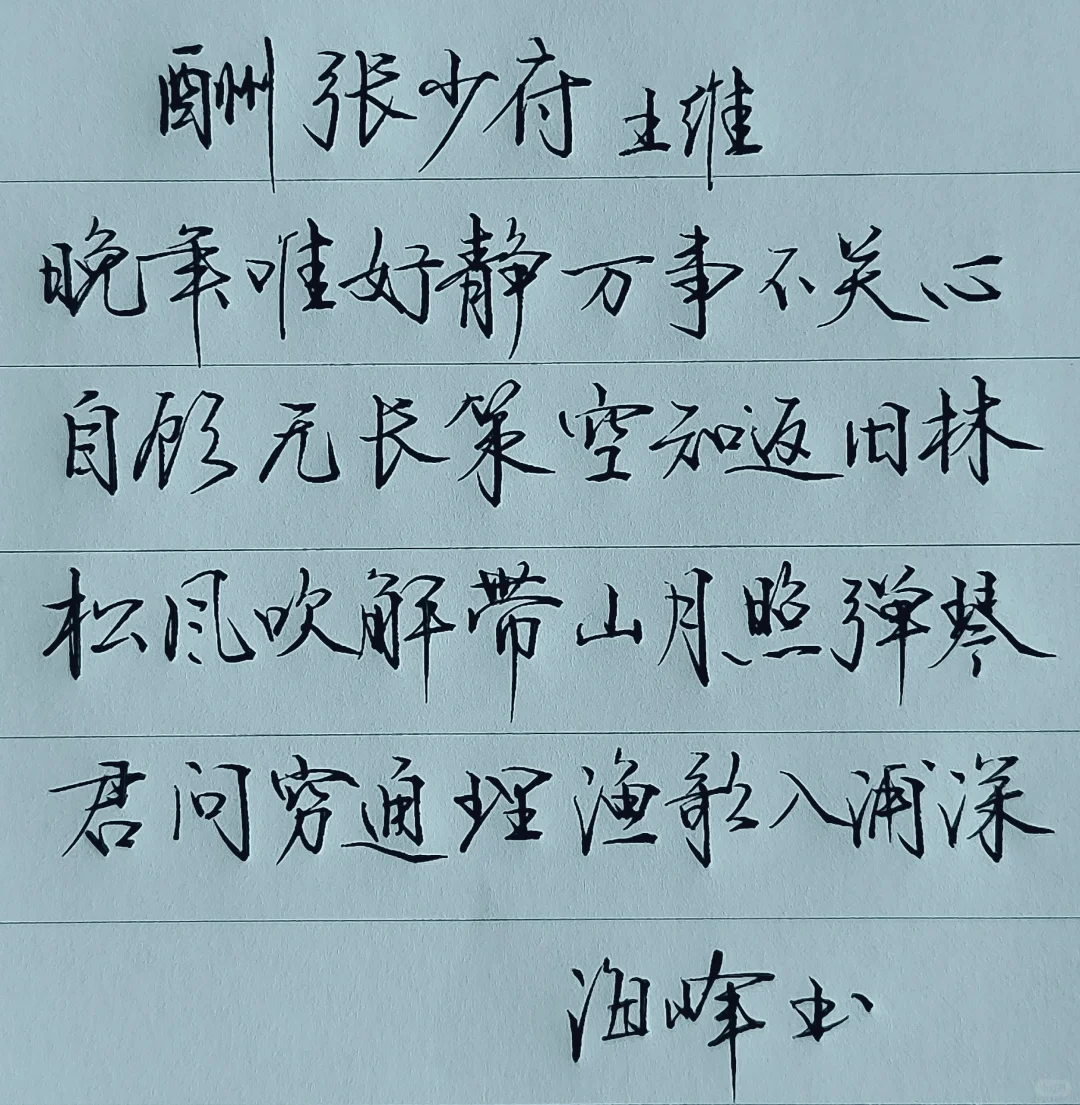 酬张少府 王维
晚年唯好静 万事不关心
自顾无长策 空知返旧林
松风吹解带 山月照弹琴
君问穷通理 渔歌入浦深
海峰书